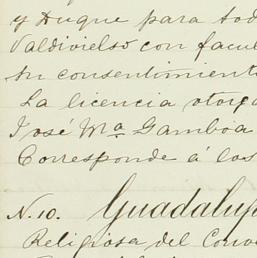 y Duque para tod
Valdivielso con facul
su consentimiento
La licencia otorga
José Mª Gamboa
Corresponde á los
N. 10. Guadalup
Religiosa del Conv